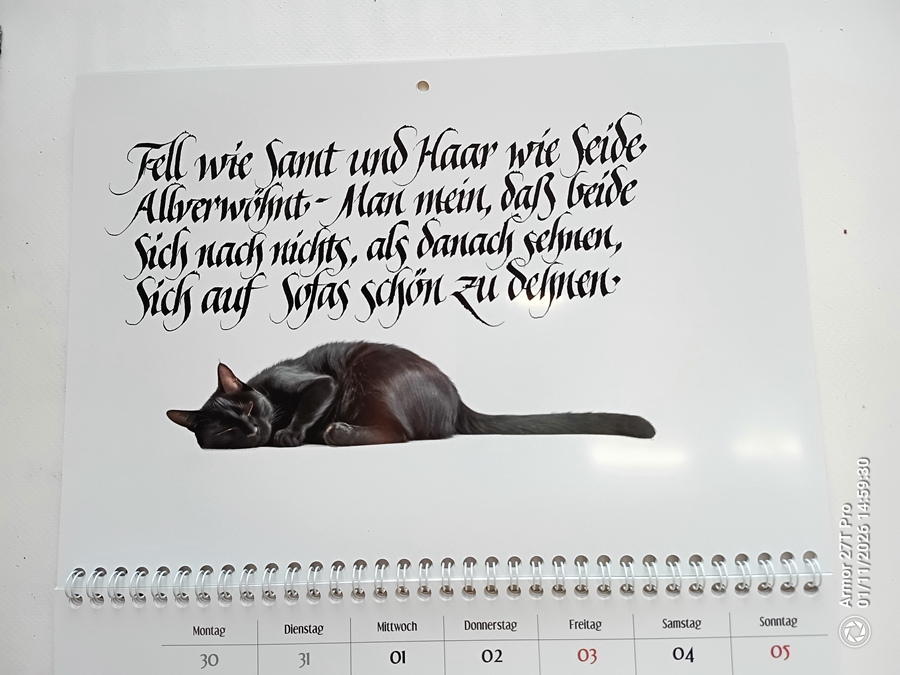 Fell wie Samt und Haar wie Seide.
Allverwöhnt. - Man mein, daß beide
Sich nach nichts, als danach sehnen,
Sich auf Sofas schön zu dehnen.
Montag Dienstag Mittwoch Donnerstag Freitag Samstag Sonntag
30 31 01 02 03 04 05
Armor 27T Pro
01/11/2026 14:59:30